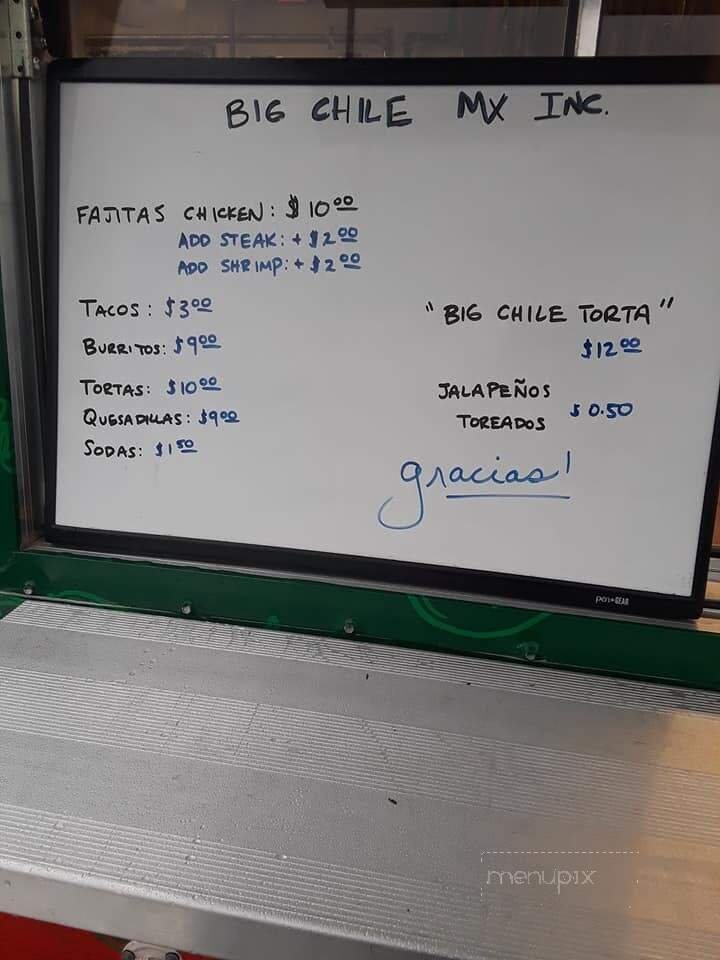 BIG CHILE MX INC.
FAJITAS CHICKEN: $10.00
ADD STEAK: + $2.00
ADD SHRIMP: + $2.00
TACOS: $3.00
BURRITOS: $9.00
TORTAS: $10.00
QUESADILLAS: $9.00
SODAS: $1.50
"BIG CHILE TORTA"
$12.00
JALAPEÑOS
TOREADOS $0.50
gracias!
pen+GEAR
menupix